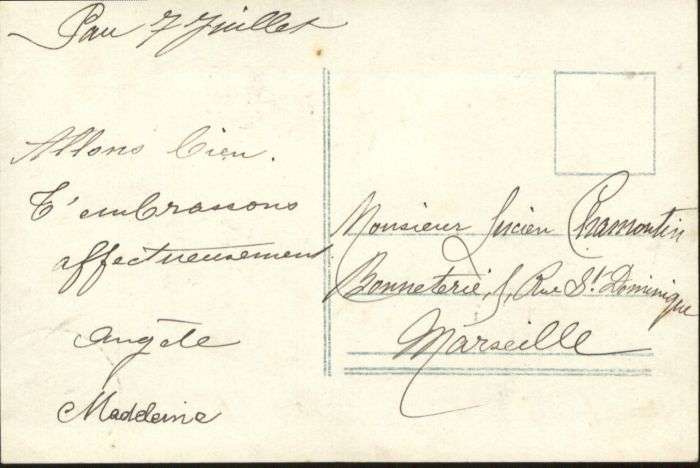 Pau 7 Juillet
Allons bien.
T'embrassons
affectueusement
Angèle
Madeleine
Monsieur Lucien Chamontin
Bonneterie, 5, Rue St Dominique
Marseille